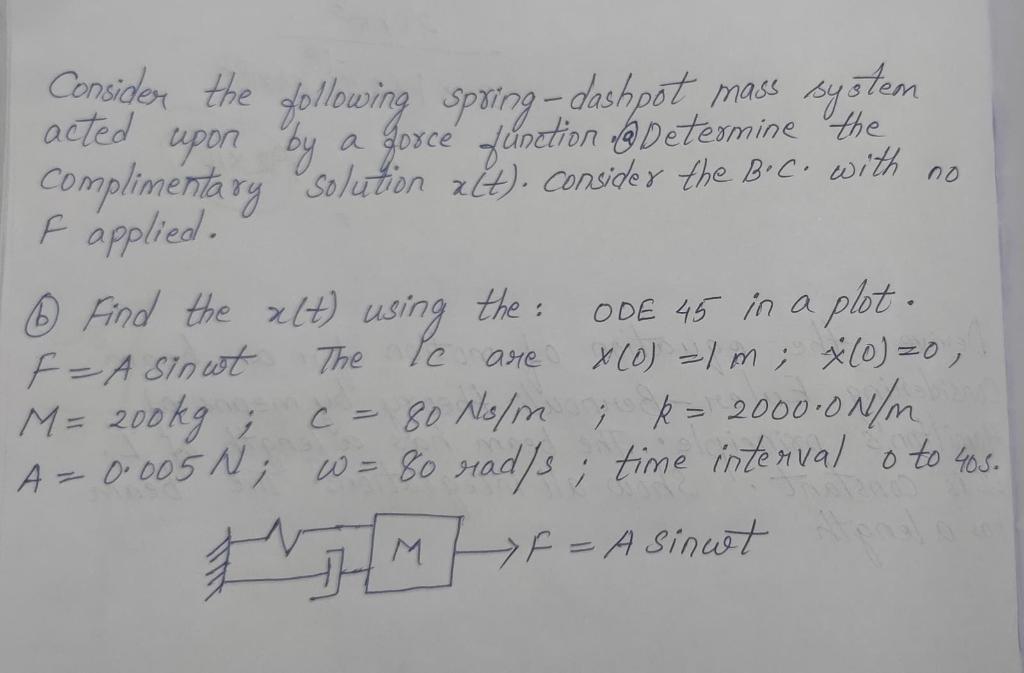 Consider the following spring-dashpot mass system
acted upon by a force function. ⓐ Determine the
complimentary solution x(t). consider the B.C. with no
F applied.
ⓑ Find the x(t) using the: ODE 45 in a plot.
F = A Sin ωt The Ic are x(0) = 1 m ; ẋ(0) = 0,
M = 200 kg ; C = 80 Ns/m ; k = 2000.0 N/m
A = 0.005 N ; ω = 80 rad/s ; time interval 0 to 40s.
M F = A Sin ωt